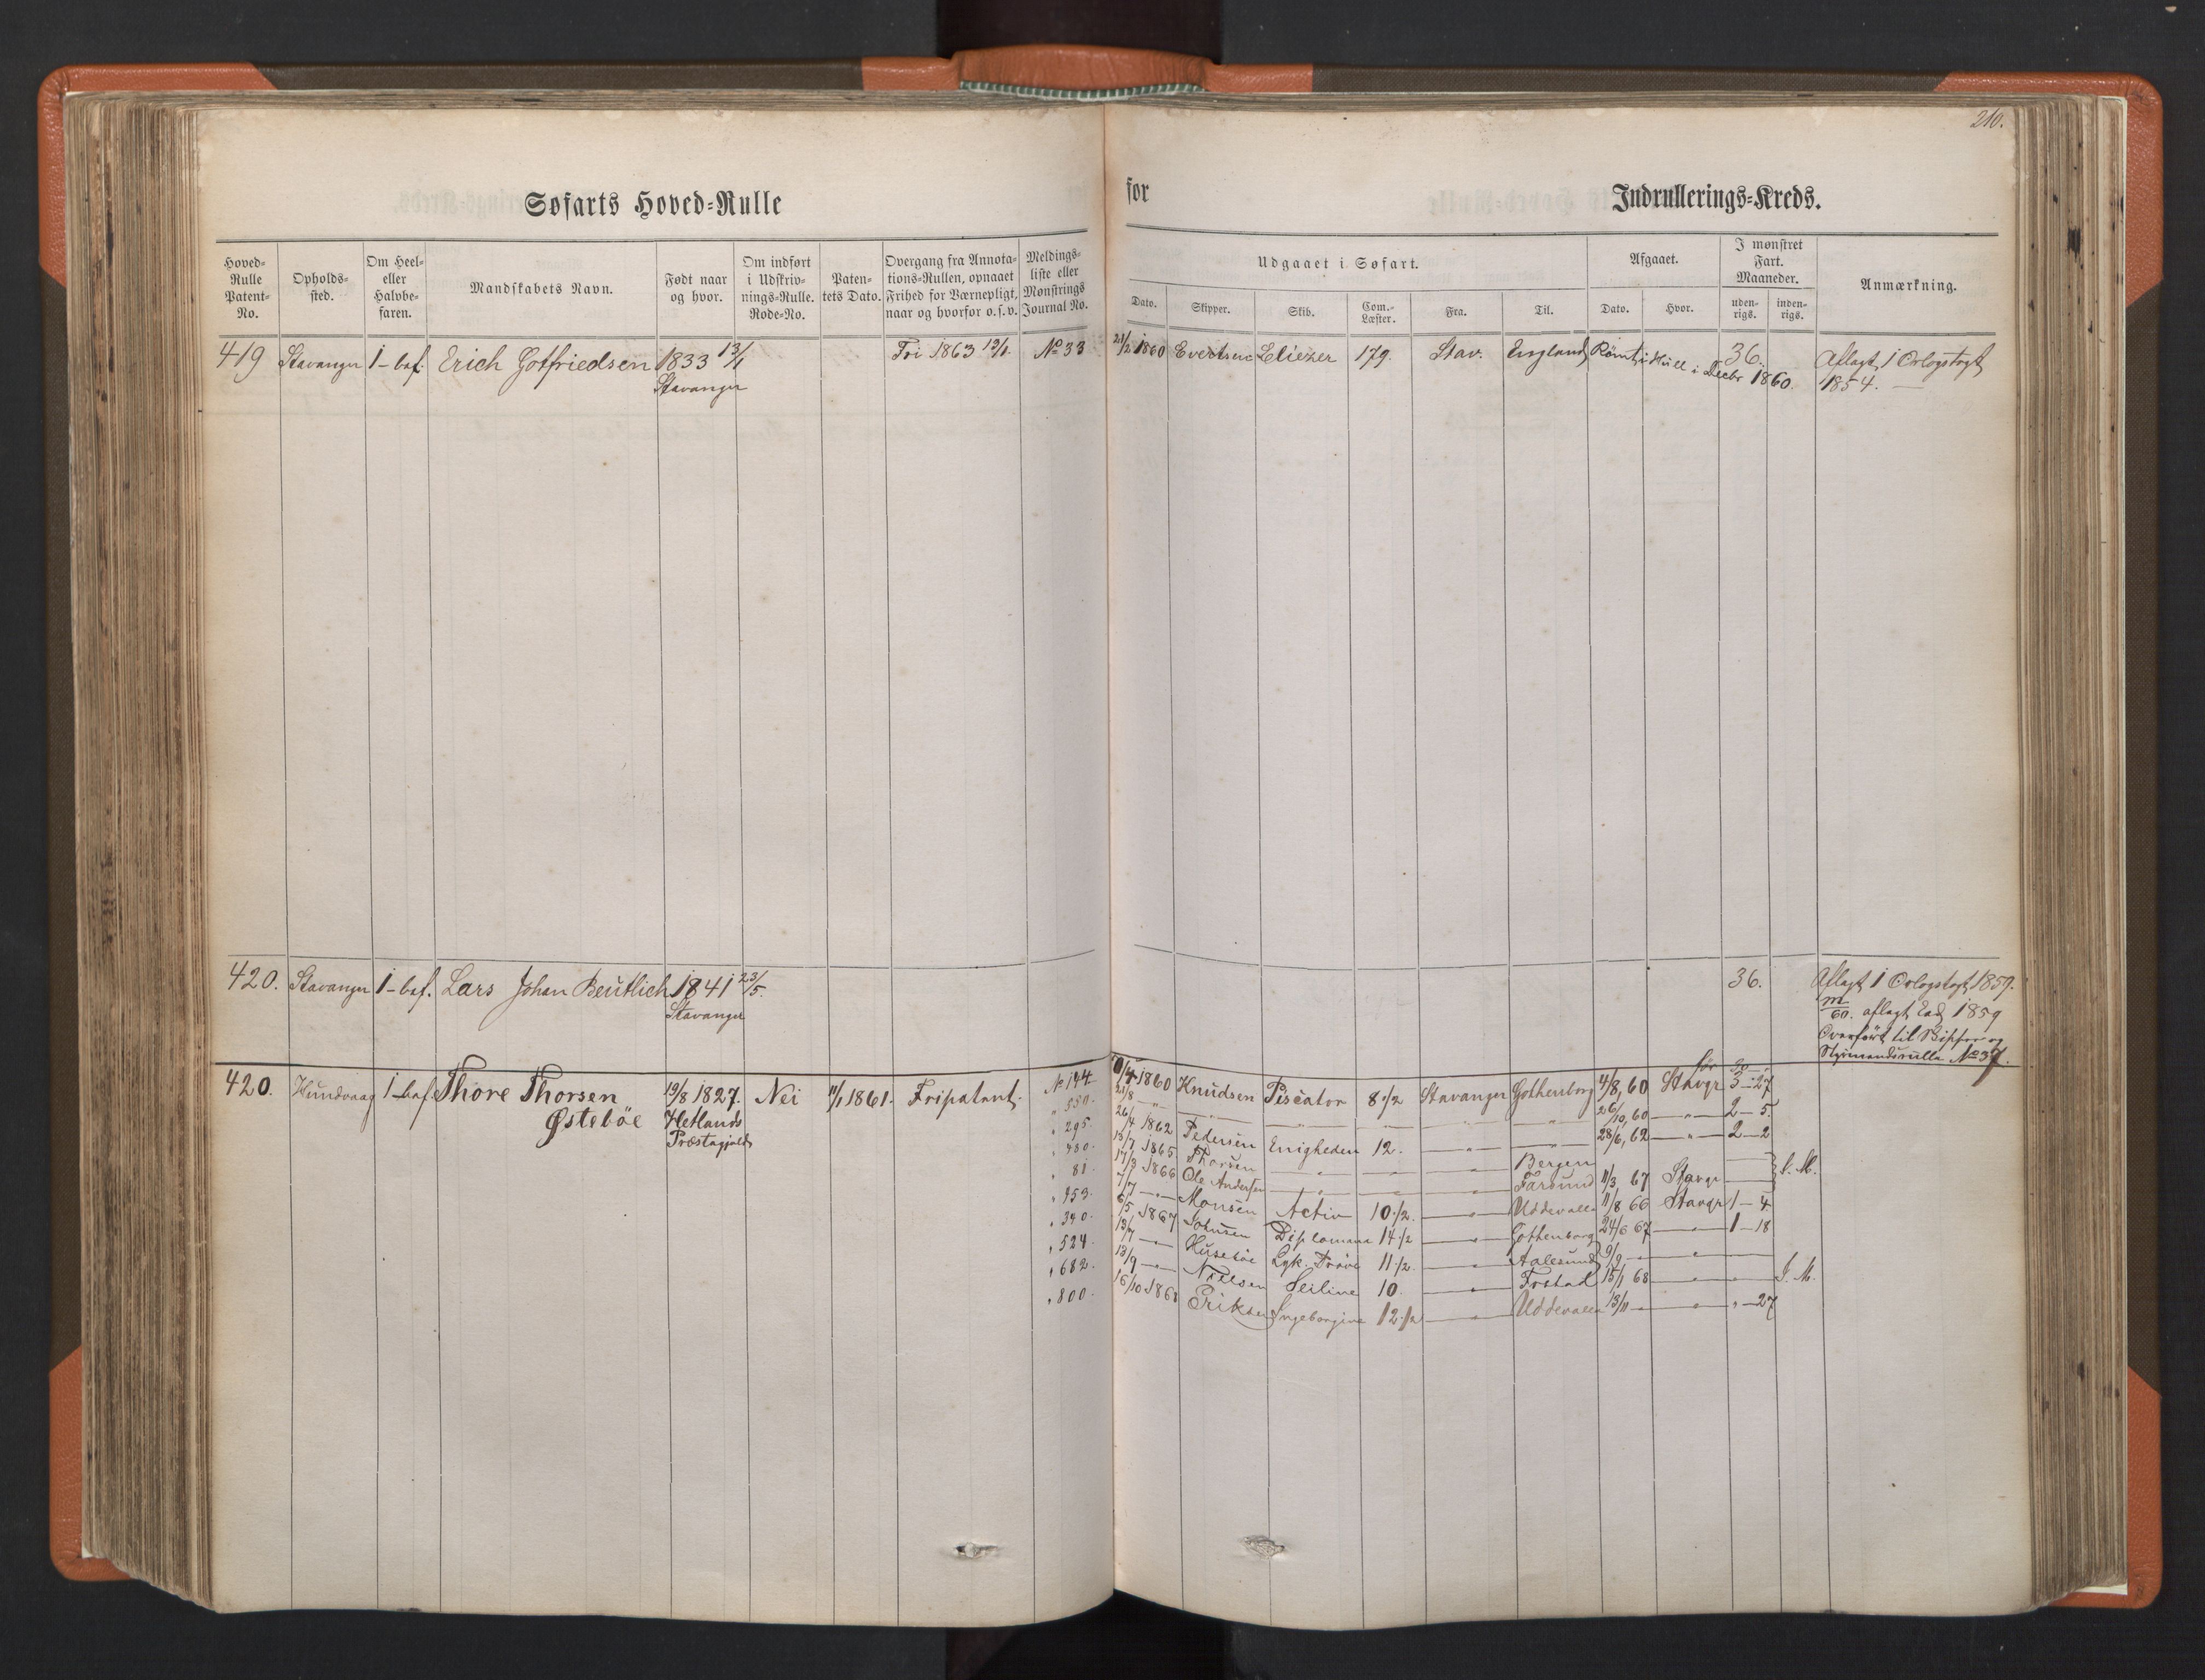 210.
Søfarts Hoved-Rulle
for
Indrullerings-Kreds.
Hoved-Rulle Patent-No.
Opholds-sted.
Om Heel- eller Halvbe-faren.
Mandskabets Navn.
Født naar og hvor.
Om indført i Udskriv-nings-Rulle. Rode-No.
Paten-tets Dato.
Overgang fra Annota-tions-Rullen, opnaaet Frihed for Værnepligt, naar og hvorfor o.s.v.
Meldings-liste eller Mønstrings Journal No.
Udgaaet i Søfart.
Afgaaet.
I mønstret Fart. Maaneder.
Anmærkning.
Dato.
Skipper.
Skib.
Com.-Læster.
Fra.
Til.
Dato.
Hvor.
uden-rigs.
inden-rigs.
419 Stavanger 1-bef. Erich Gotfriedsen 1833 13/1 Fri 1863 13/1. No 33 21/2 1860 Evertsen Eliezer 179. Stav. England Rømt i Hull i Decbr 1860. 36. Aflagt 1 Orlogstogt
Stavanger 1854.
420. Stavanger 1-bef. Lars Johan Beutlich 1841 23/5. 36. Aflagt 1 Orlogstogt 1859.
Stavanger m/60. aflagt Ed 1859
Overført til Skipper og
Styrmandsrulle No 37.
før 30
420. Hundvaag 1-bef. Thore Thorsen 19/8 1827. Nei 11/1 1861. Fripatent. No 144 1860 Knudsen Piscator 8 1/2 Stavanger Gothenborg 4/8, 60 Stavgr 3-27
Østebøe Hetlands " 550. 21/8 26/10, 60 2-5.
Præstegjeld " 295. 26/4 1862 Pedersen Enigheden 12. 28/6, 62 2-2
" 480. 18/7 1865 Thorsen Bergen
" 81. 17/3 1866 Ole Andersen Farsund 11/3 67 Stavgr
" 453. 7/7 Monsen Activ 10 1/2. Uddevalla 11/8 66 Stavgr 1-4
" 340. 6/5 1867 Johnsen 14 1/2 Gothenborg 24/6 67 1-18
" 524. 13/7 Husebøe Lyk. Prøve 11 1/2. Aalesund 9/9
" 682. 13/9 Nielsen Seiline 10. 15/1 68
" 800. 16/10 1868 Eriksen Ingeborgine 12 1/2 Uddevalla 13/11 "-27